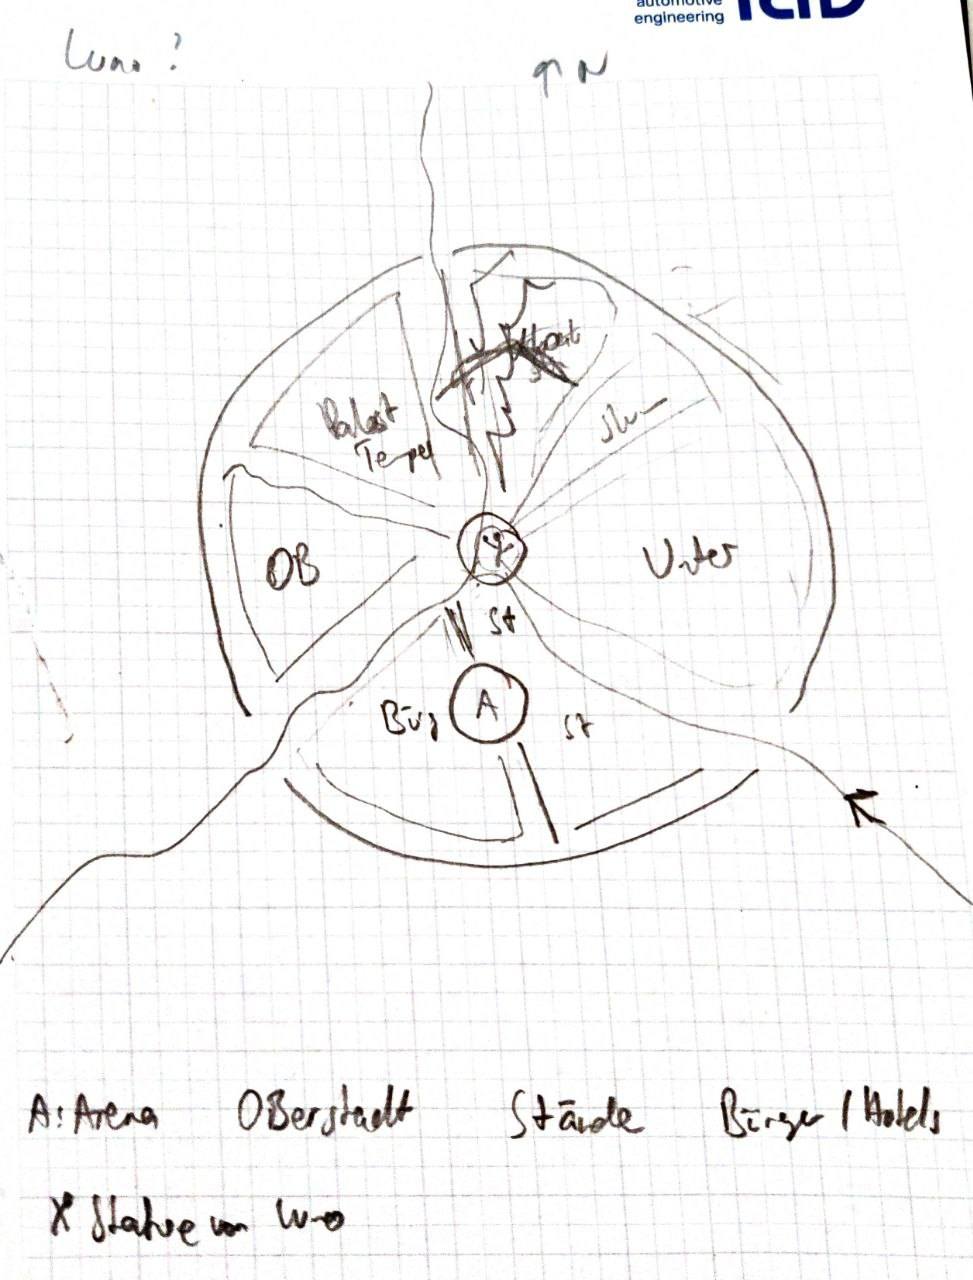 automotive
engineering
↑ N
Palast
Tempel
OB
Unter
St
A
Bürg
St
A: Arena OBerstadt Stände Bürger / Hotels
X Statue von